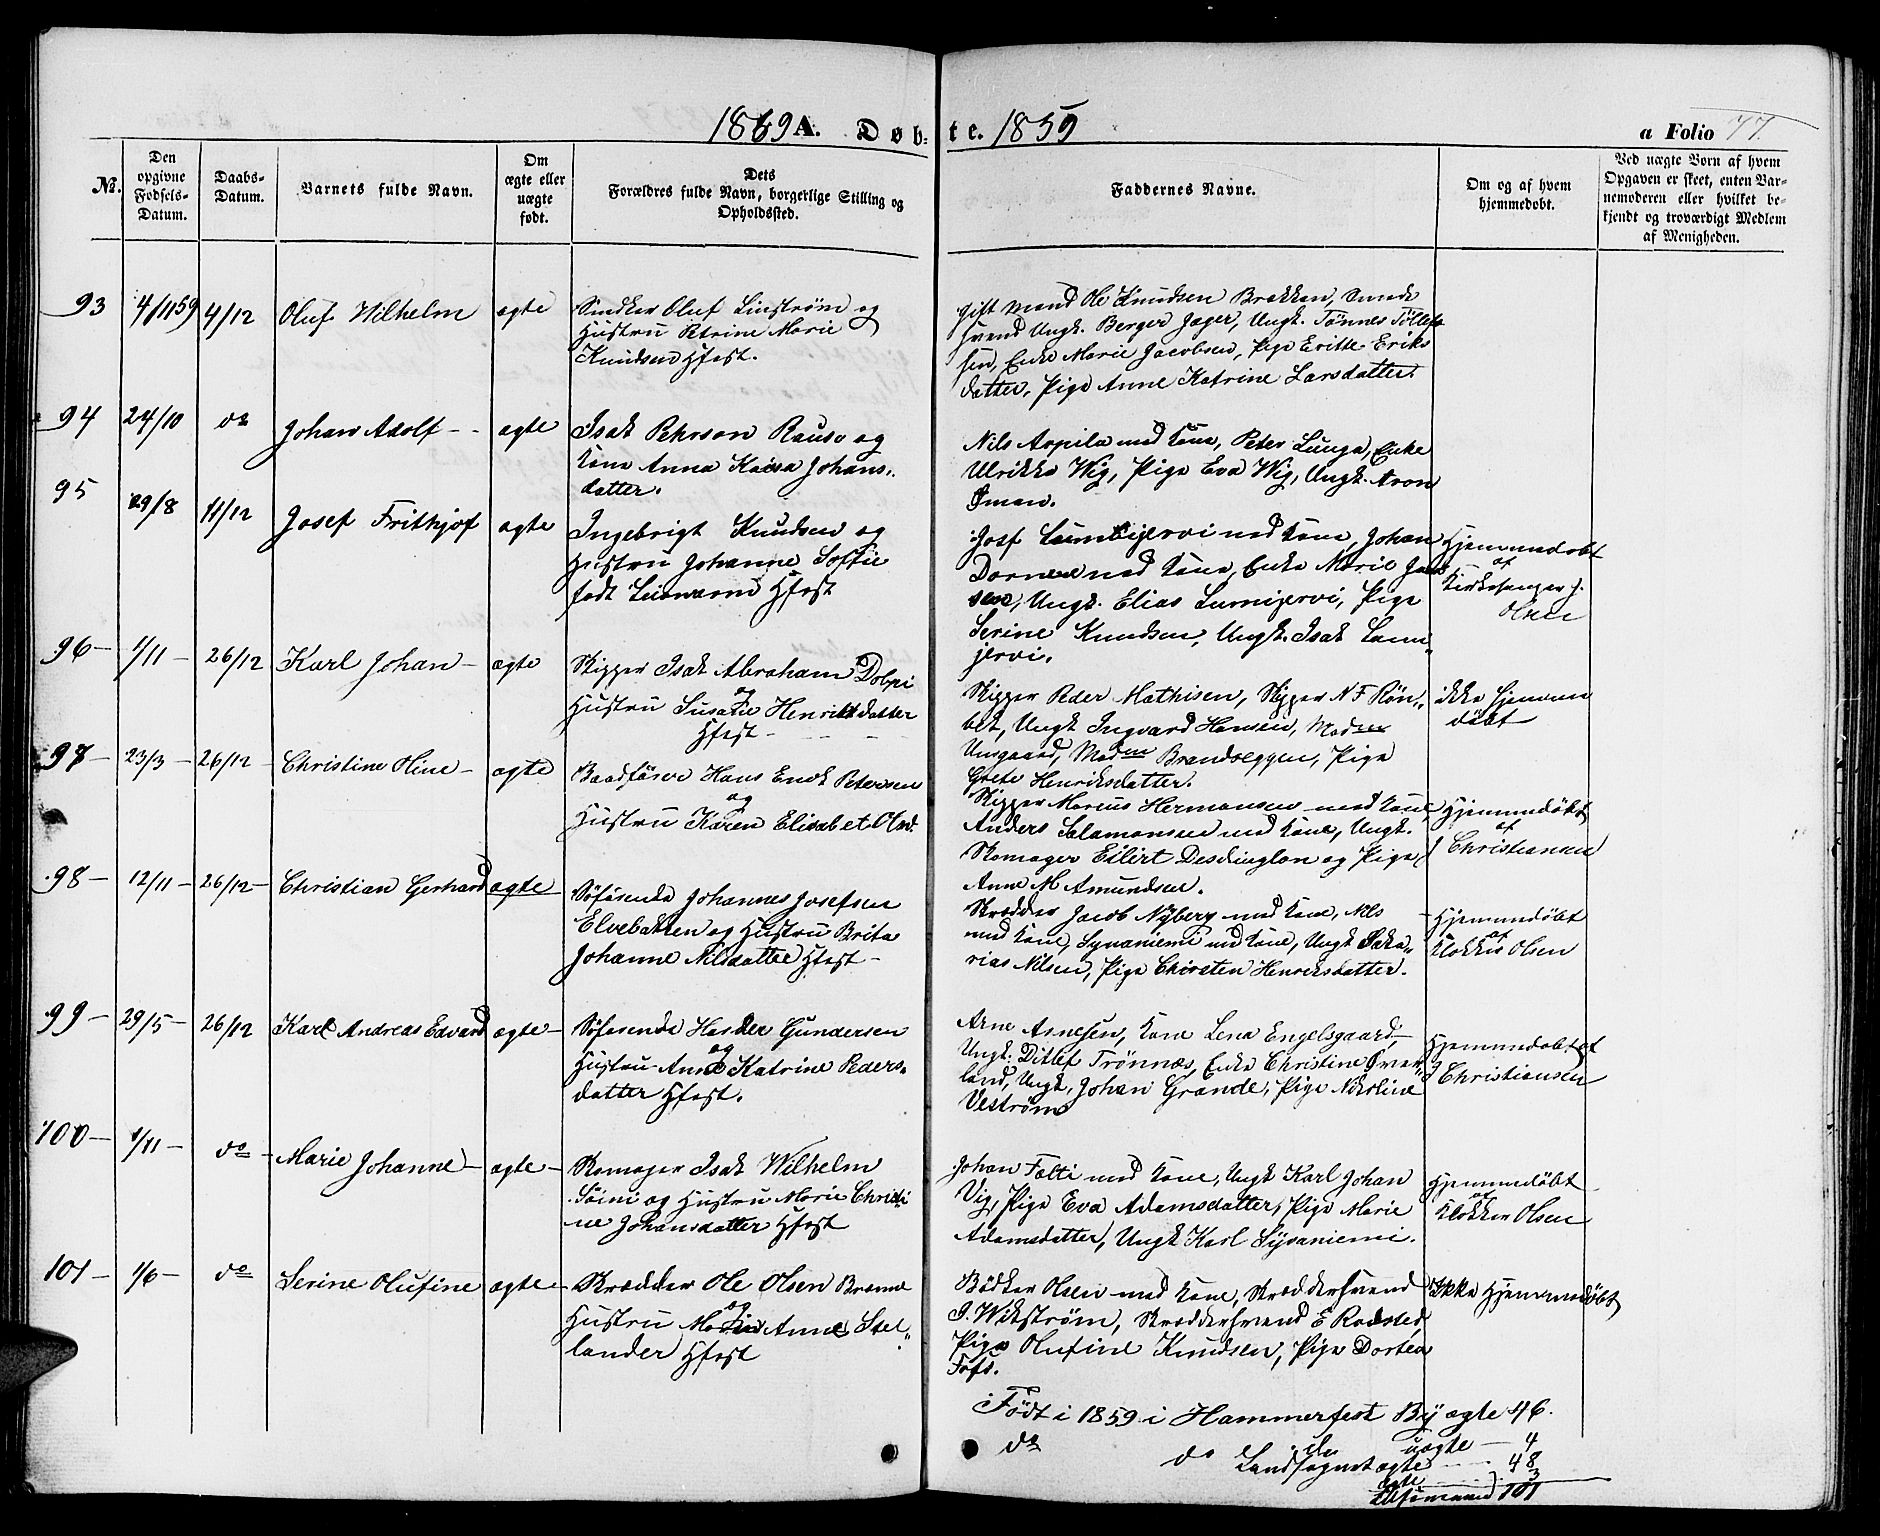 1859 A. Døbte. 1859
a Folio 77.
No.
Den opgivne Fødsels-Datum.
Daabs-Datum.
Barnets fulde Navn.
Om ægte eller uægte født.
Dets Forældres fulde Navn, borgerlige Stilling og Opholdssted.
Faddernes Navne.
Om og af hvem hjemmedøbt.
Ved uægte Børn af hvem Opgaven er skeet, enten Barnemoderen eller hvilket bekjendt og troværdigt Medlem af Menigheden.
93 4/11 59 4/12 Oluf Wilhelm ægte
Snedker Oluf Linstrøm og
Hustru Petrine Marie
Knudsen Hfest.
Gift Mand Ole Knudsen Brakken, Smede
svend Ungk. Berger Jæger, Ungk. Tønnes Tøllef
sen, Enke Marie Jacobsen, Pige Eritte Eriks
datter, Pige Anne Katrine Larsdatter.
94 24/10 do Johan Adolf - - ægte
Isak Pehrson Rauso og
Kone Anna Kaisa Johans-
datter.
Nils Aspila med Kone, Peter Lunga, Enke
Ulrikka Wig, Pige Eva Wig, Ungk. Aron
95 29/8 11/12 Josef Frithjof ægte
Ingebrigt Knudsen og
Hustru Johanne Sofie
født Hfest
Josf med Kone, Johan
med Kone, Enke Marie
sen, Ungk. Elias Lumijervi, Pige
Serine Knudsen, Ungk. Isak Lumi-
jervi.
Hjemmedøbt
af
Kirkesanger J.
Olsen
96 - 1/11 - 26/12 Karl Johan - ægte
Skipper Isak Abraham Dolpi
og
Hustru Henriksdatter
Hfest -
Skipper Peder Mathisen, Skipper N F Røn-
bek, Ungk Ingvard Hansen, Madm
Unsgaard, Madm Brandseggen, Pige
Grete Henriksdatter.
ikke Hjemme
døbt
97 - 23/3 - 26/12 - Christine Oline - ægte
Baadfører Hans Enok Petersen
og
Hustru Karen Elisabet Olsd.
Skipper Marcus Hermansen med Kone
Anders Salamonsen med Kone, Ungk.
Skomager Eilert Desdington og Pige
Anne M Amundsen.
Hjemmedøbt
af
Christiansen
98 - 12/11 - 26/12 - Christian Gerhard ægte
Søfarende Johannes Josefsen
Elvebakken og Hustru Brita
Johanne Nilsdatter Hfest -
Skrædder Jacob Nyberg med Kone, Nils
med Kone, Syvaniemi med Kone, Ungk Saka-
rias Nilsen, Pige Chirsten Henriksdatter.
Hjemmedøbt
af
Klokker Olsen
99 - 29/5 - 26/12 Karl Andreas Edvard ægte -
Søfarende Gundersen
og
Hustru Anne Katrine Peders-
datter Hfest.
Arne Arnesen, Kone Lena Engelsgaard,
Ungk. Ditlef Trønnæs, Enke Christine Over-
land, Ungk. Johan Grande, Pige Nikoline
Vestrøm
Hjemmedøbt af
Christiansen
100 - 1/11 - do - Marie Johanne - ægte -
Skomager Isak Wilhelm
Søini og Hustru Marie Christi
ne Johansdatter Hfest
Johan Fælti med Kone, Ungk Karl Johan
Vig, Pige Eva Adamsdatter, Pige Marie
Adamsdatter, Ungk Karl Syvaniemi.
Hjemmedøbt
af
Klokker Olsen
101 - 1/6 - do Serine Olufine ægte -
Skrædder Ole Olsen
og
Hustru Anne Stel-
lander Hfest
Bødker Olsen med Kone, Skræddersvend
J. Wikstrøm, Skræddersvend E Rodsted
Pige Olufine Knudsen, Pige Dortea
Fofs.
Ikke Hjemmedøbt
Født i 1859 i Hammerfest By ægte 46.
do uægte - 4
do Landsognet ægte 48
3
Tilsammen 101